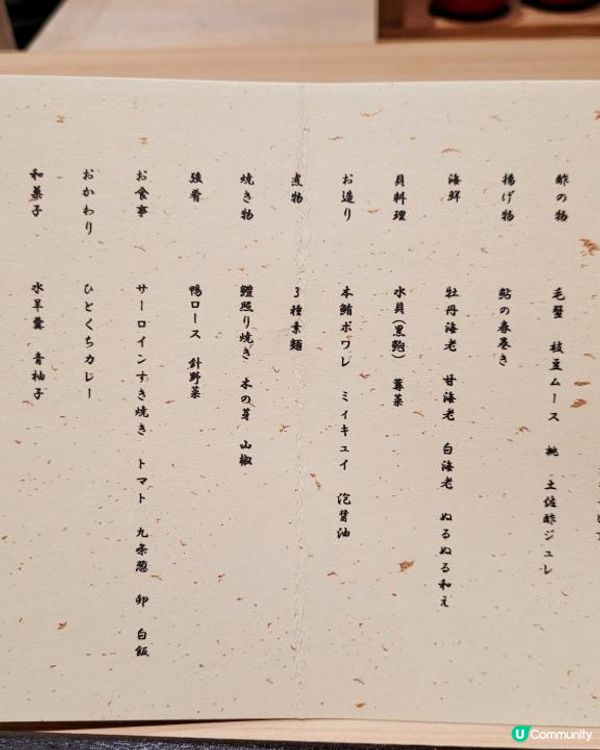 酢の物 毛蟹 枝豆ムース 桃 土佐酢ジュレ
揚げ物 鮎の春巻き
海鮮 牡丹海老 甘海老 白海老 ぬるぬる和え
貝料理 水貝(黒鮑) 蓴菜
お造り 本鮪ポワレ ミィキュイ 泡醤油
煮物 3種素麺
焼き物 鱧照り焼き 木の芽 山椒
強肴 鴨ロース 針野菜
お食事 サーロインすき焼き トマト 九条葱 卵 白飯
おかわり ひとくちカレー
和菓子 水羊羹 青柚子
U Community